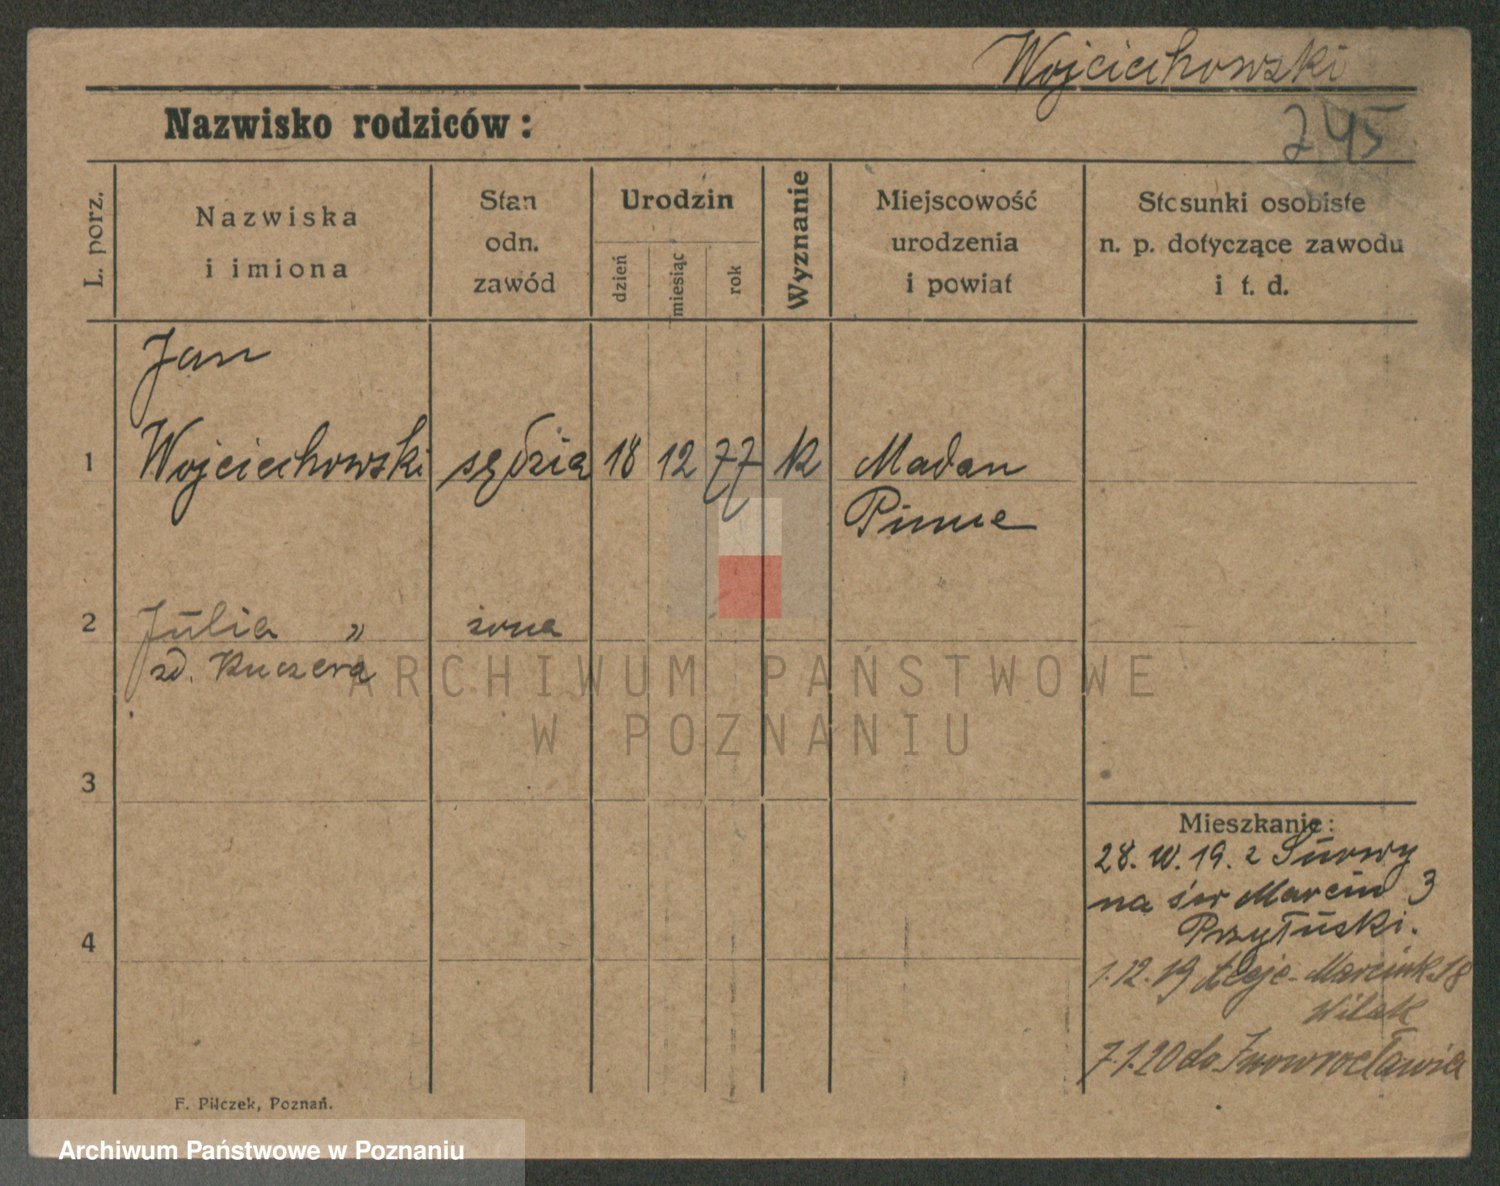 Wojciechowski
Nazwisko rodziców:
245
L. porz.
Nazwiska
i imiona
Stan
odn.
zawód
Urodzin
dzień
miesiąc
rok
Wyznanie
Miejscowość
urodzenia
i powiat
Stosunki osobiste
n. p. dotyczące zawodu
i t. d.
Jan
1 Wojciechowski sędzia 18 12 77 k Madan
Pinne
2 Julia " żona
zd. Kuczera
ARCHIWUM PAŃSTWOWE
W POZNANIU
3
Mieszkanie:
28. 19. z
na św Marcin 3
4 Przyłuski.
1.12.19 Aleje Marcink 18
Witak
7.1.20 do Inowrocławia
F. Pilczek, Poznań.
Archiwum Państwowe w Poznaniu